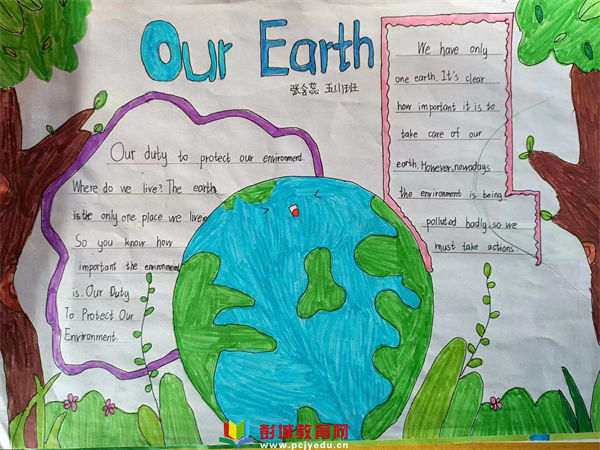 Our Earth
张含蕊 五(1)班
Our duty to protect our environment.
Where do we live? The earth
is the only one place we live
So you know how
important the environment
is. Our Duty
To Protect Our
Environment.
We have only
one earth. It's clear
how important it is to
take care of our
earth. However, nowadays
the environment is being
polluted badly, so we
must take actions.
彭城教育网
www.pcjyedu.cn